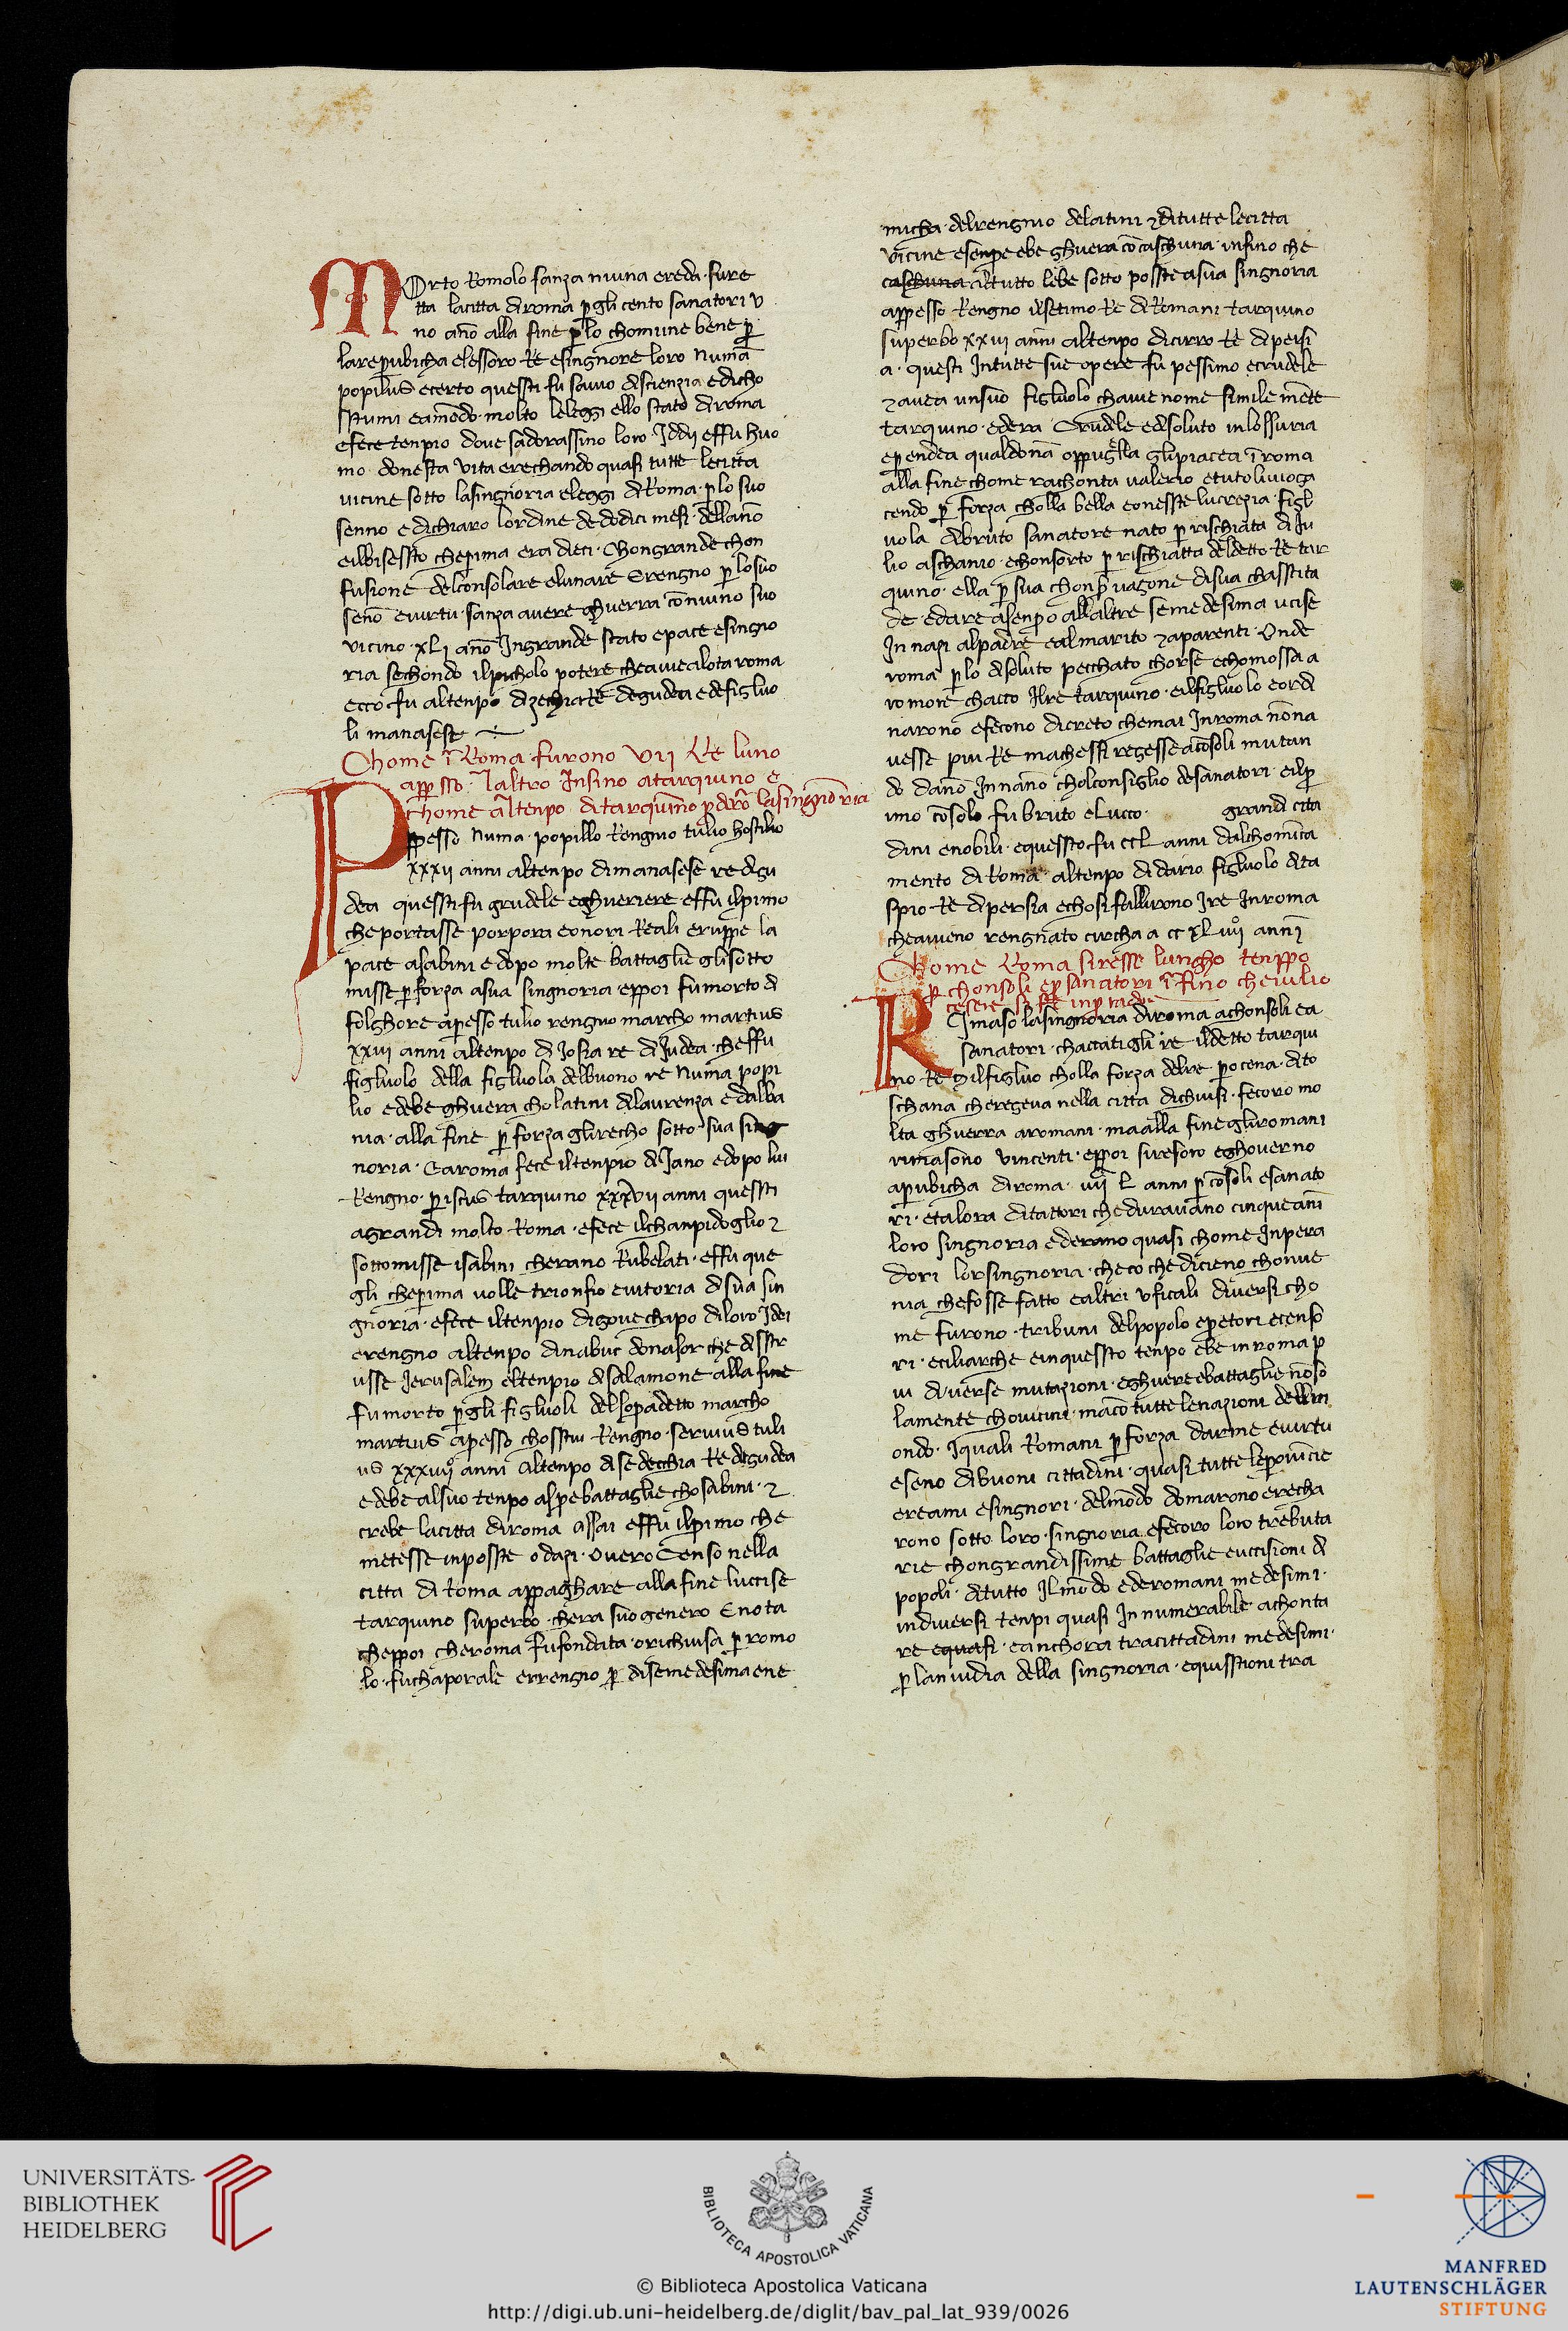 MOrto Romolo sanza niuna ereda · fure
tta lacitta diroma p gli cento sanatori v
no año alla fine p lo chomune bene p
larepubicha elessoro Re esingnore loro Numa
popilius ecerto questi fu savio discienzia edicho
stumi eamēdo molto leleggi ello stato diroma
efece tenpio dove sadorassino loro Iddii effu huo
mo donesta vita erechando quasi tutte lecitta
vicine sotto lasingnoria eleggi diRoma · p lo suo
senno edichiaro lordine dedodici mesi · dellano
eilbisessto cheprima era dieci · Chongrande chon
fusione delconsolare elunare Erengno p losuo
seño evirtu · sanza avere ghuerra cōniuno suo
vicino · xli año Ingrande stato epace esingno
ria sechondo ilpicholo potere cheavealota roma
ecco fu altenpo dizechia Re degudea edefigluo
li manasese
Chome ī Roma · furono vii Re luno
appsso laltro Insino atarquino e
chome altenpo ditarquino pderō lasingnoria
Ppesso Numa · popillo Rengnio tulio hostilio
xxxii anni altenpo dimanasese re digu
dea questi fu grudele eghueriere effu ilpimo
cheportasse porpora eonori Reali eruppe la
pace asabini edopo molte battaglie glisotto
misse p forza asua singnoria eppoi fu morto di
folghore apesso tulio rengnio marcho martius
xxiii anni altenpo di Iosia re di Iudea · cheffu
figluolo della figluola delbuono re Numa popi
lio edebe ghuera cholatini dilaurenza edalba
nia · alla fine p forza glirecho sotto sua sing
noria · Earoma fece iltenpio di Jano edopo lui
Rengno · piscus tarquino xxxvii anni questi
agrandi molto Roma · efece ilchanpidoglio z
sottomisse isabini cherano Rubelati · effu que
gli cheprima volle trionfio evitoria disua sin
gnoria · efece iltenpio digove chapo diloro Idei
erengno altenpo dinabuc donasor che disstr
usse Jerusalem eltenpio disalamone alla fine
fu morto p gli figluoli delsopadetto marcho
martius apesso chosstui Rengno · servius tuli
us xxxiiii anni Altenpo disedechia Re degudea
edebe alsuo tenpo aspe battaglie chosabini · z
crebe lacitta diroma assai effu ilpimo che
metesse inposste odazi · overo Censo nella
citta di Roma appaghare alla fine luccise
tarquino superbo · chera suo genero Enota
cheppoi cheroma fu fondata · orichiusa p romo
lo · fu chaporale errengno p disemedesima ene
micha · delrengnio delatini z ditutte lecitta
vicine esenpe ebe ghuera cō caschuna · insino che
caschuna altutto lebe sotto posste asua singnoria
appesso Rengno ilsetimo Re diRomani tarquino
superbo xxvi anni altenpo dicirro Re dipersi
a · questi Intutte sue opere fu pessimo ecrudele
z avea unsuo figluolo chavie nome simile mēte
tarquino · edera Crudele edisoluto inlossuria
ependea qualdonā oppugella glipiacea ī roma
alla fine chome rachonta valerio etuto livio gia
cendo p forza cholla bella eonesste lucrezia · figl
uola dibruto sanatore nato p rischiata di Iu
lio aschanio · echonsorto p rischiatta deldetto Re tar
quino · ella p sua chonp vagone disua chasstita
de edare asenpo allaltre semedesima ucise
Innazi alpadre ealmarito z aparenti · Onde
roma p lo disoluto pecchato chorse echomossa a
romore chacco Ilre tarquino · eilfigluolo eordi
narono efecono dicreto chemai Inroma nōna
vesse piu Re machessi regesse acōsoli mutan
do danō Innano cholconsiglio desanatori · eilp
imo cōsolo fu bruto elucco · grand cita
dini enobili · equessto fu ccl anni dalchomīca
mento diRoma · altenpo didario figluolo dita
spio Re dipersia echosi fallirono Ire Inroma
cheavieno rengnato circha a ccxliiii anni
Chome Roma siresse lungho tenppo
p chonsoli ep sanatori ī fino cheiulio
cesere si fe inpradore
RImaso lasingnoria diroma achonsoli ea
sanatori · chaccati gli re ildetto tarqui
no Re eilfigluo cholla forza delre pocena · dito
schana cheregeva nella citta dichiusi · fecoro mo
lta ghuerra aromani · maalla fine gliromani
rimasono vincenti · eppoi siresoro eghoverno
apubicha diroma · iiii L anni p cōsoli esanato
ri · etalora ditattori chedurauano cinque anī
loro singnoria ederano quasi chome Inpera
dori lorsingnoria · checo che dicieno chonve
nia chefosse fatto ealtri uficali diversi cho
me furono · tribuni delpopolo epetori ecenso
ri · eciliarche einquessto tenpo ebe in roma p
iu diverse mutazioni · eghuere ebattaglie nōso
lamente chovicini · macō tutte lenazioni delm
ondo · Iquali Romani p forza darme evirtu
eseno dibuoni cittadini · quasi tutte leprovincie
ereami esingnori · delmōdo domarono erecha
rono sotto loro singnoria efecoro loro trebuta
rie chongrandissime battaglie euccisioni di
popoli · ditutto Ilmōdo ederomani medesimi ·
indiversi tenpi quasi Innumerabile · achonta
re equasi · eanchora tracittadini medesimi ·
p laninvidia della singnoria · equisstioni tra
UNIVERSITÄTS-
BIBLIOTHEK
HEIDELBERG
BIBLIOTECA APOSTOLICA VATICANA
© Biblioteca Apostolica Vaticana
http://digi.ub.uni-heidelberg.de/diglit/bav_pal_lat_939/0026
MANFRED
LAUTENSCHLÄGER
STIFTUNG